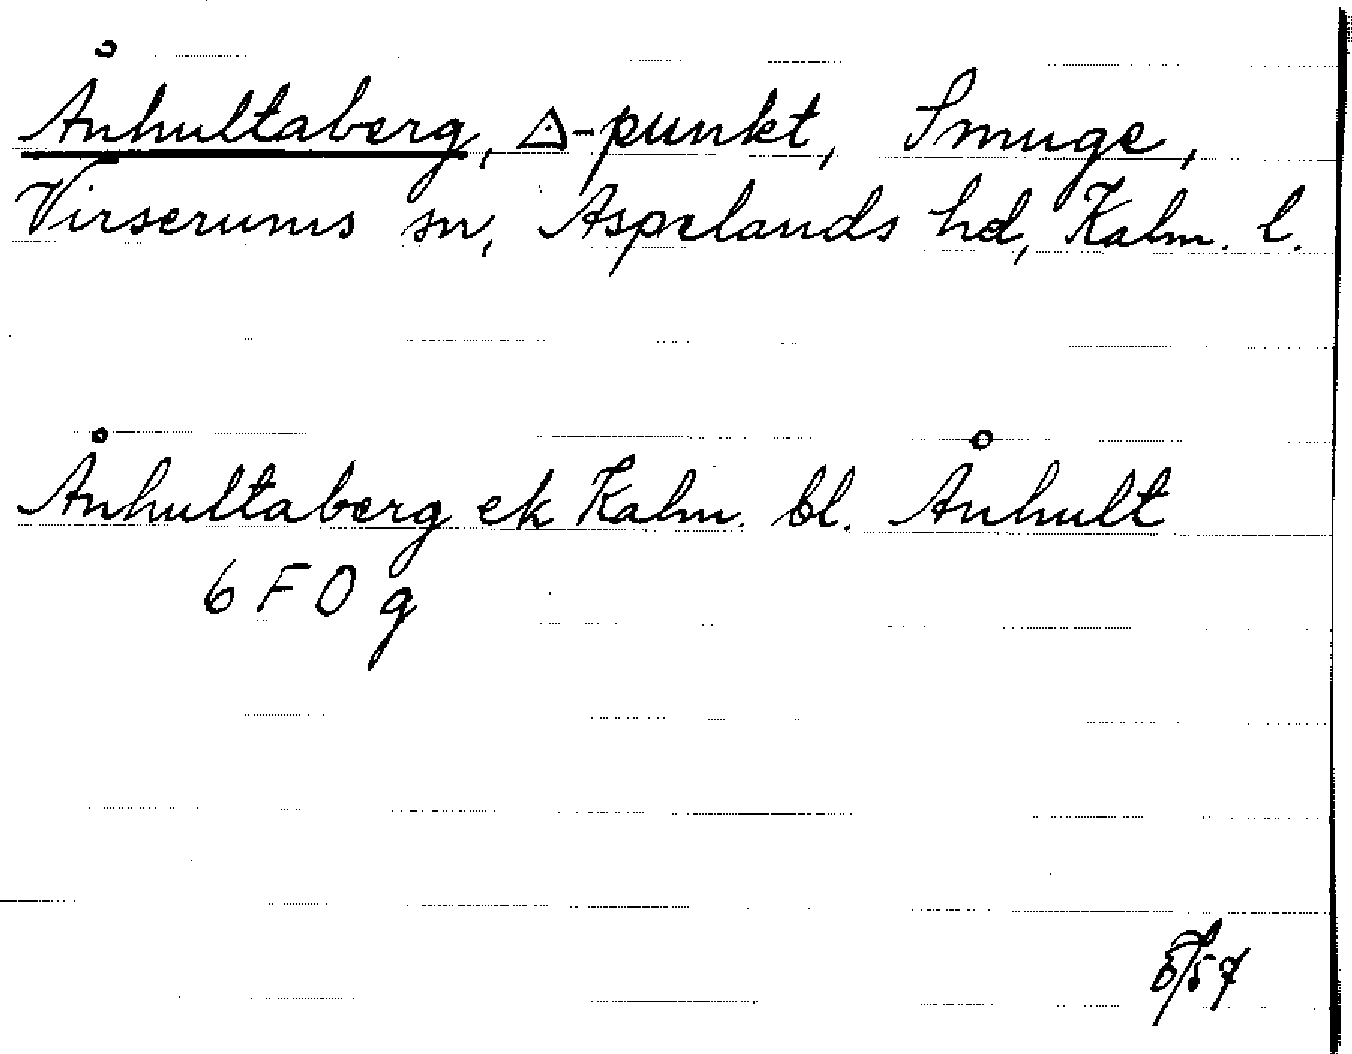 Ånhultaberg, △-punkt, Smuge,
Virserums sn, Aspelands hd, Kalm. l.
Ånhultaberg ek Kalm. bl. Ånhult
6 F O g